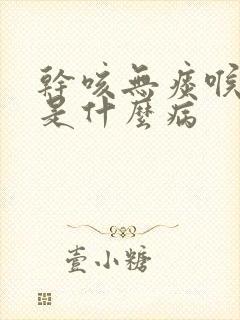 幹咳無痰喉
是什麼病
壹小糖